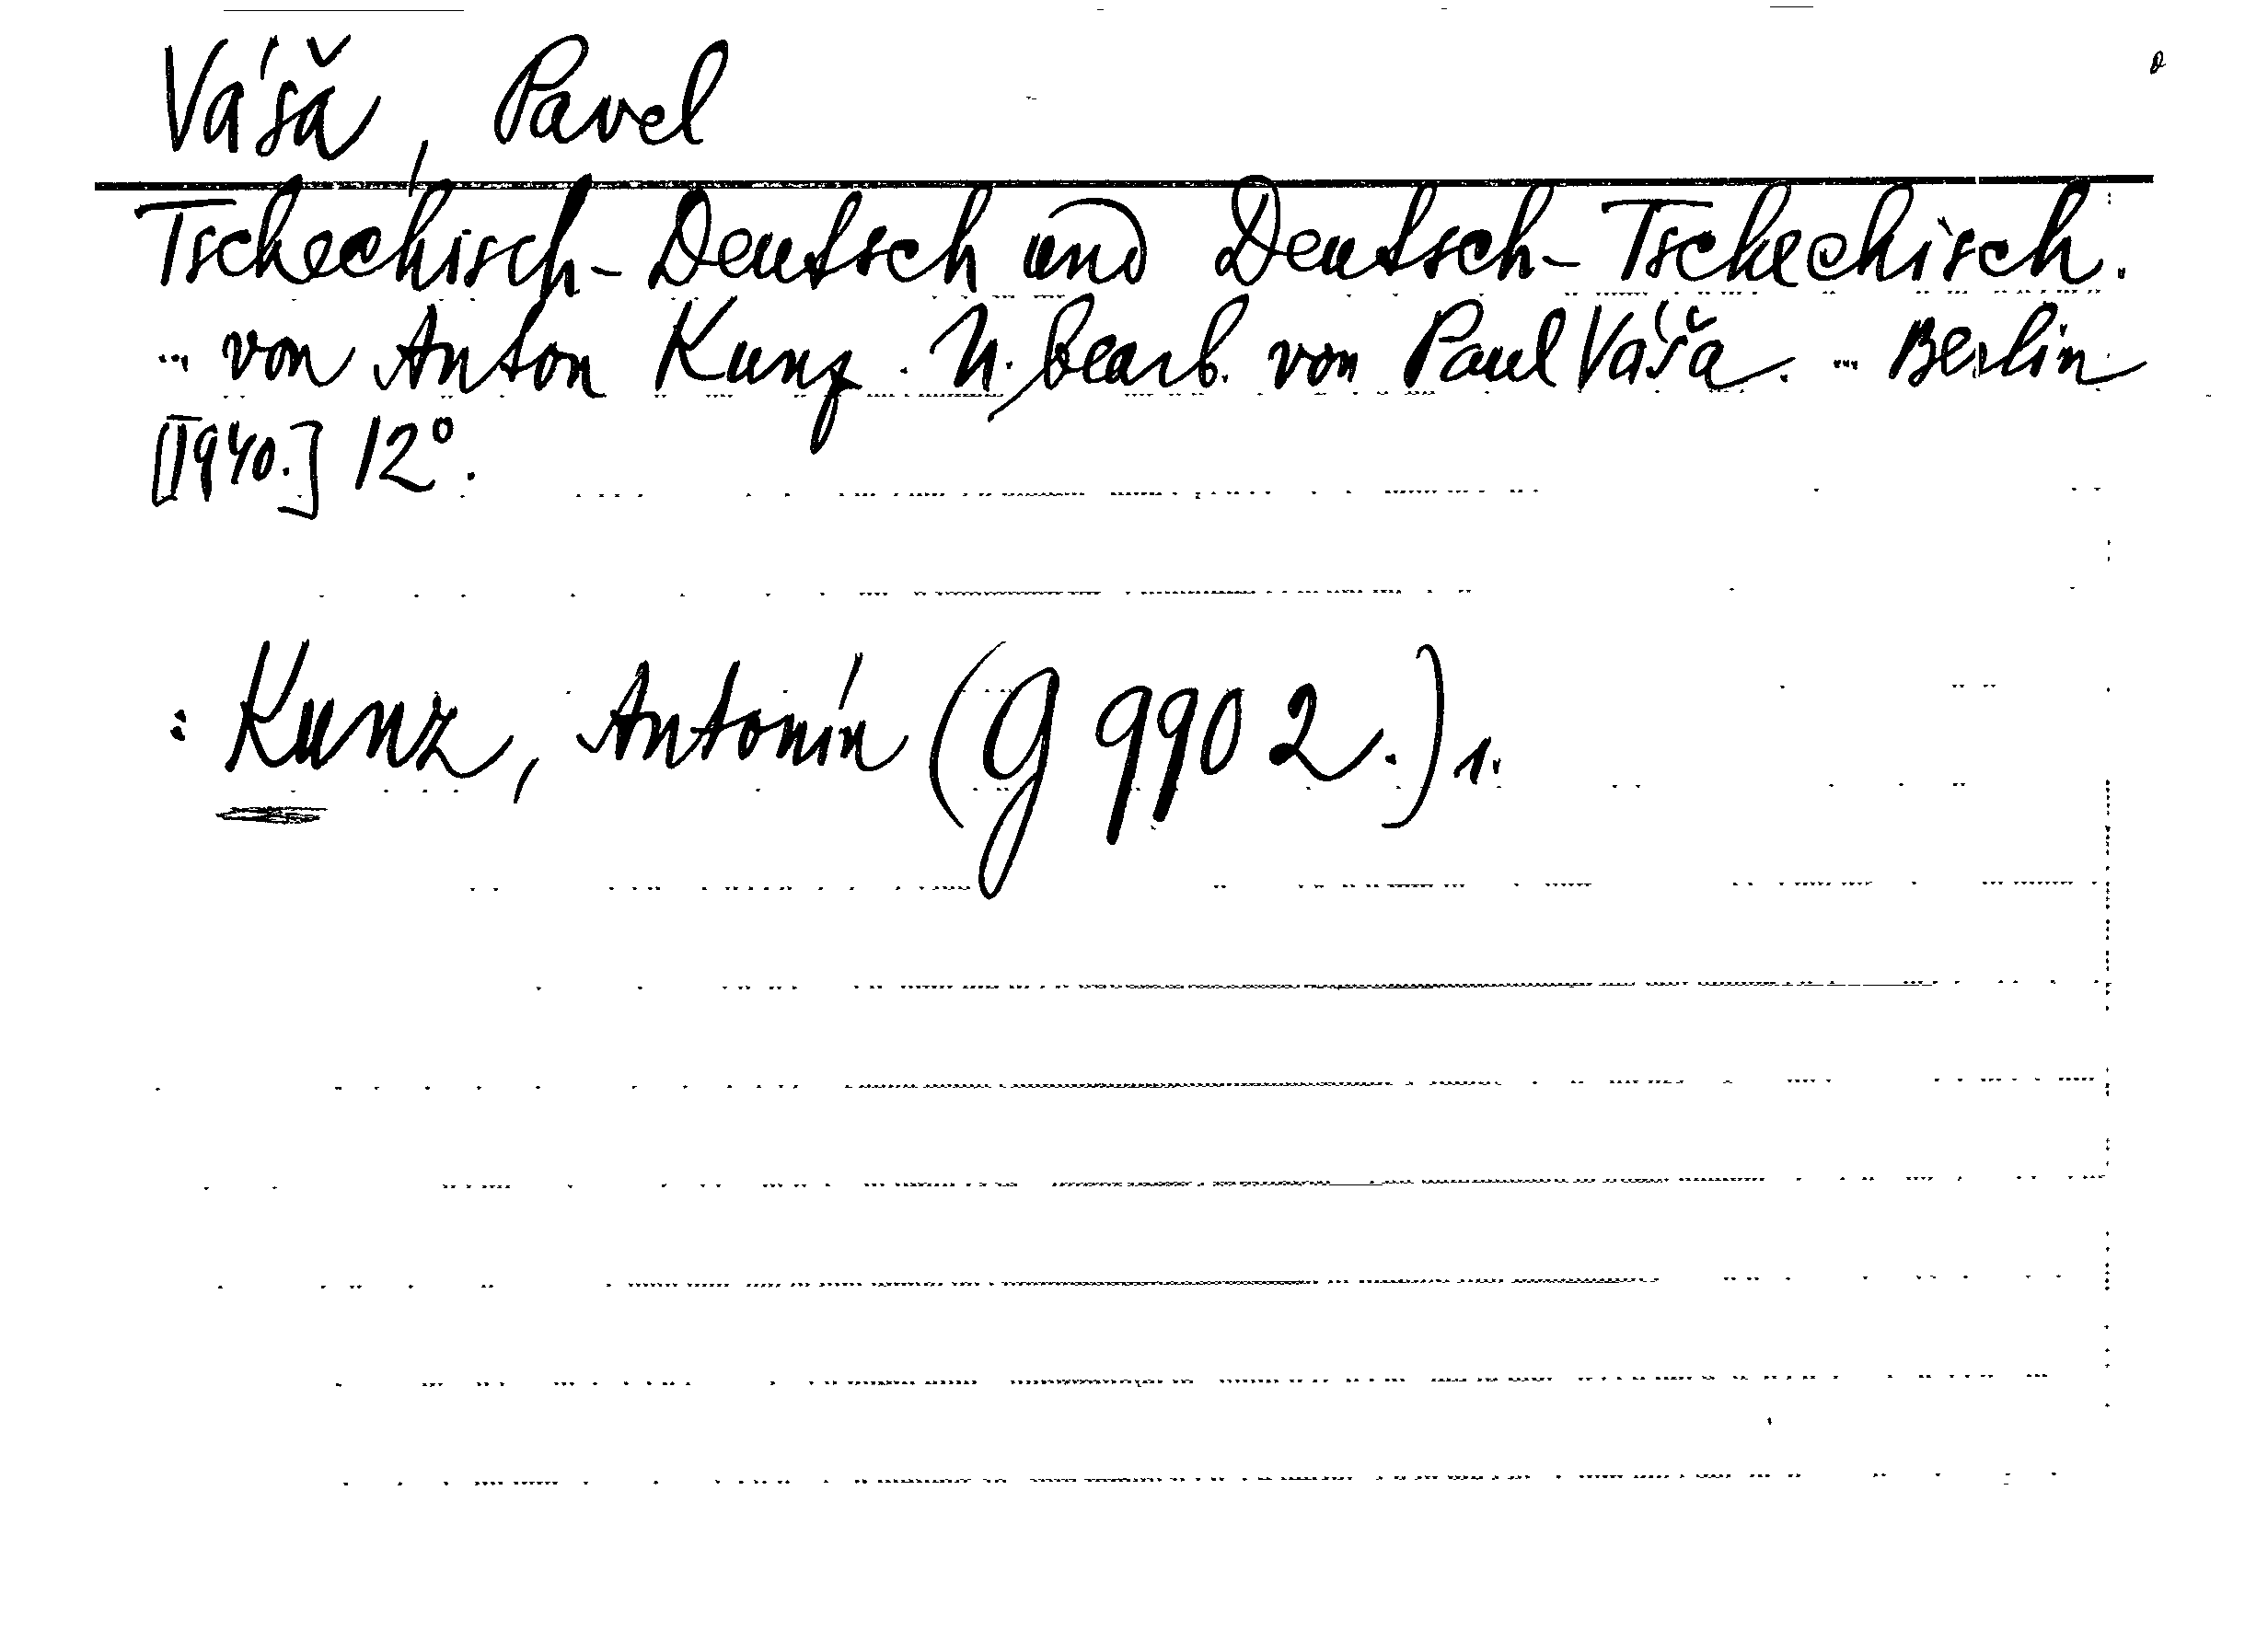 Váša, Pavel
Tschechisch-Deutsch und Deutsch-Tschechisch.
... von Anton Kunz. N. bearb. von Paul Váša. ... Berlin
[1940.] 12°.
: Kunz, Antonín (G 990 2.) 1.